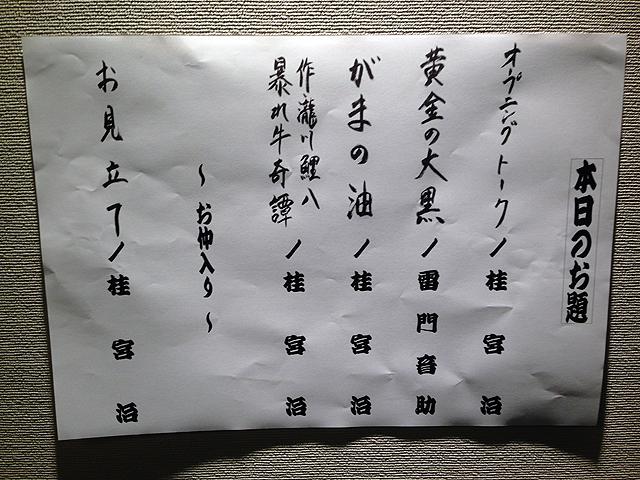 本日のお題
オープニングトーク／桂宮治
黄金の大黒／雷門音助
がまの油／桂宮治
作瀧川鯉八
暴れ牛奇譚／桂宮治
～お仲入り～
お見立て／桂宮治